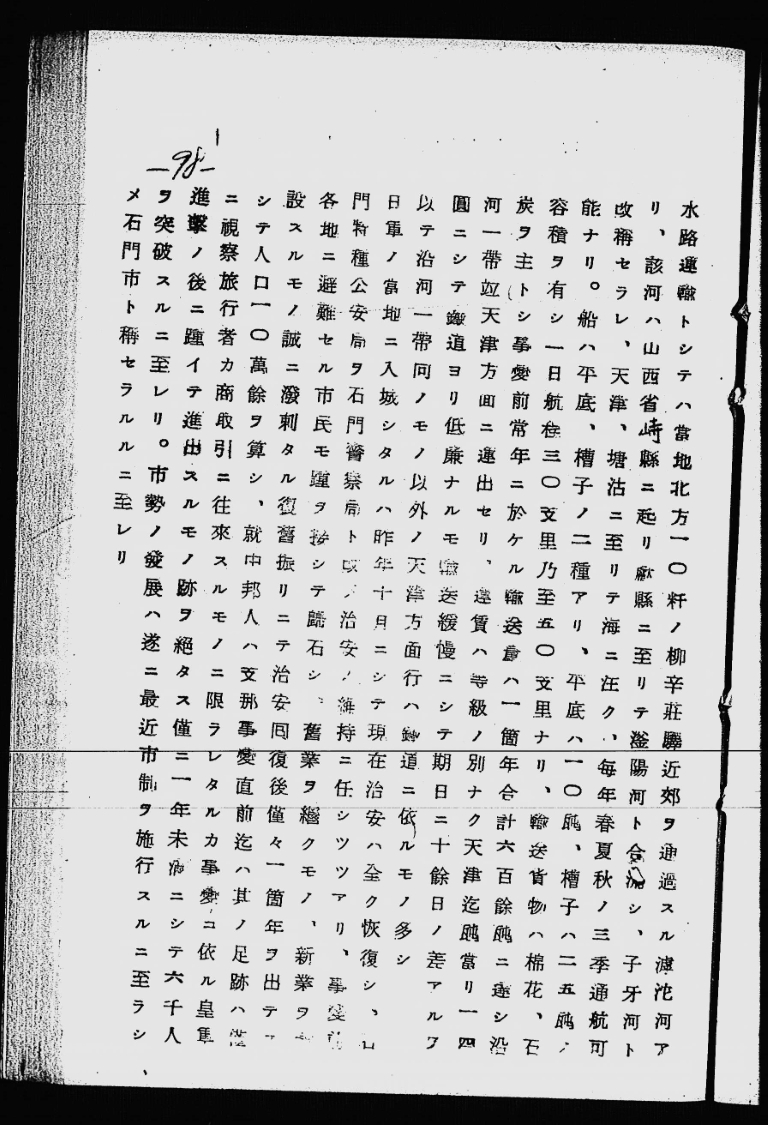 水路運輸トシテハ當地北方一〇粁ノ柳辛莊驛近郊ヲ通過スル滹沱河ア
リ、該河ハ山西省崞縣ニ起リ獻縣ニ至リテ滏陽河ト合流シ、子牙河ト
改稱セラレ、天津、塘沽ニ至リテ海ニ注ク、每年春夏秋ノ三季通航可
能ナリ。船ハ平底、槽子ノ二種アリ、平底ハ一〇瓲、槽子ハ二五瓲ノ
容積ヲ有シ一日航程三〇支里乃至五〇支里ナリ、輸送貨物ハ棉花、石
炭ヲ主トシ事變前常年ニ於ケル輸送量ハ一箇年合計六百餘瓲ニ達シ沿
河一帶竝天津方面ニ運出セリ、運賃ハ等級ノ別ナク天津迄瓲當リ一四
圓ニシテ鐵道ヨリ低廉ナルモ輸送緩慢ニシテ期日ニ十餘日ノ差アルヲ
以テ沿河一帶向ノモノ以外ノ天津方面行ハ鐵道ニ依ルモノ多シ
日軍ノ當地ニ入城シタルハ昨年十月ニシテ現在治安ハ全ク恢復シ、石
門特種公安局ヲ石門警察局ト改メ治安ノ維持ニ任シツツアリ、事變前
各地ニ避難セル市民モ踵ヲ接シテ歸石シ、舊業ヲ繼クモノ、新業ヲ
設スルモノ誠ニ潑剌タル復舊振リニテ治安囘復後僅々一箇年ヲ出テス
シテ人口一〇萬餘ヲ算シ、就中邦人ハ支那事變直前迄ハ其ノ足跡ハ僅
ニ視察旅行者カ商取引ニ往來スルモノニ限ラレタルカ事變ニ依ル皇軍
進擊ノ後ニ踵イテ進出スルモノ跡ヲ絕タス僅ニ一年未滿ニシテ六千人
ヲ突破スルニ至レリ。市勢ノ發展ハ遂ニ最近市制ヲ施行スルニ至ラシ
メ石門市ト稱セラルルニ至レリ
—98—